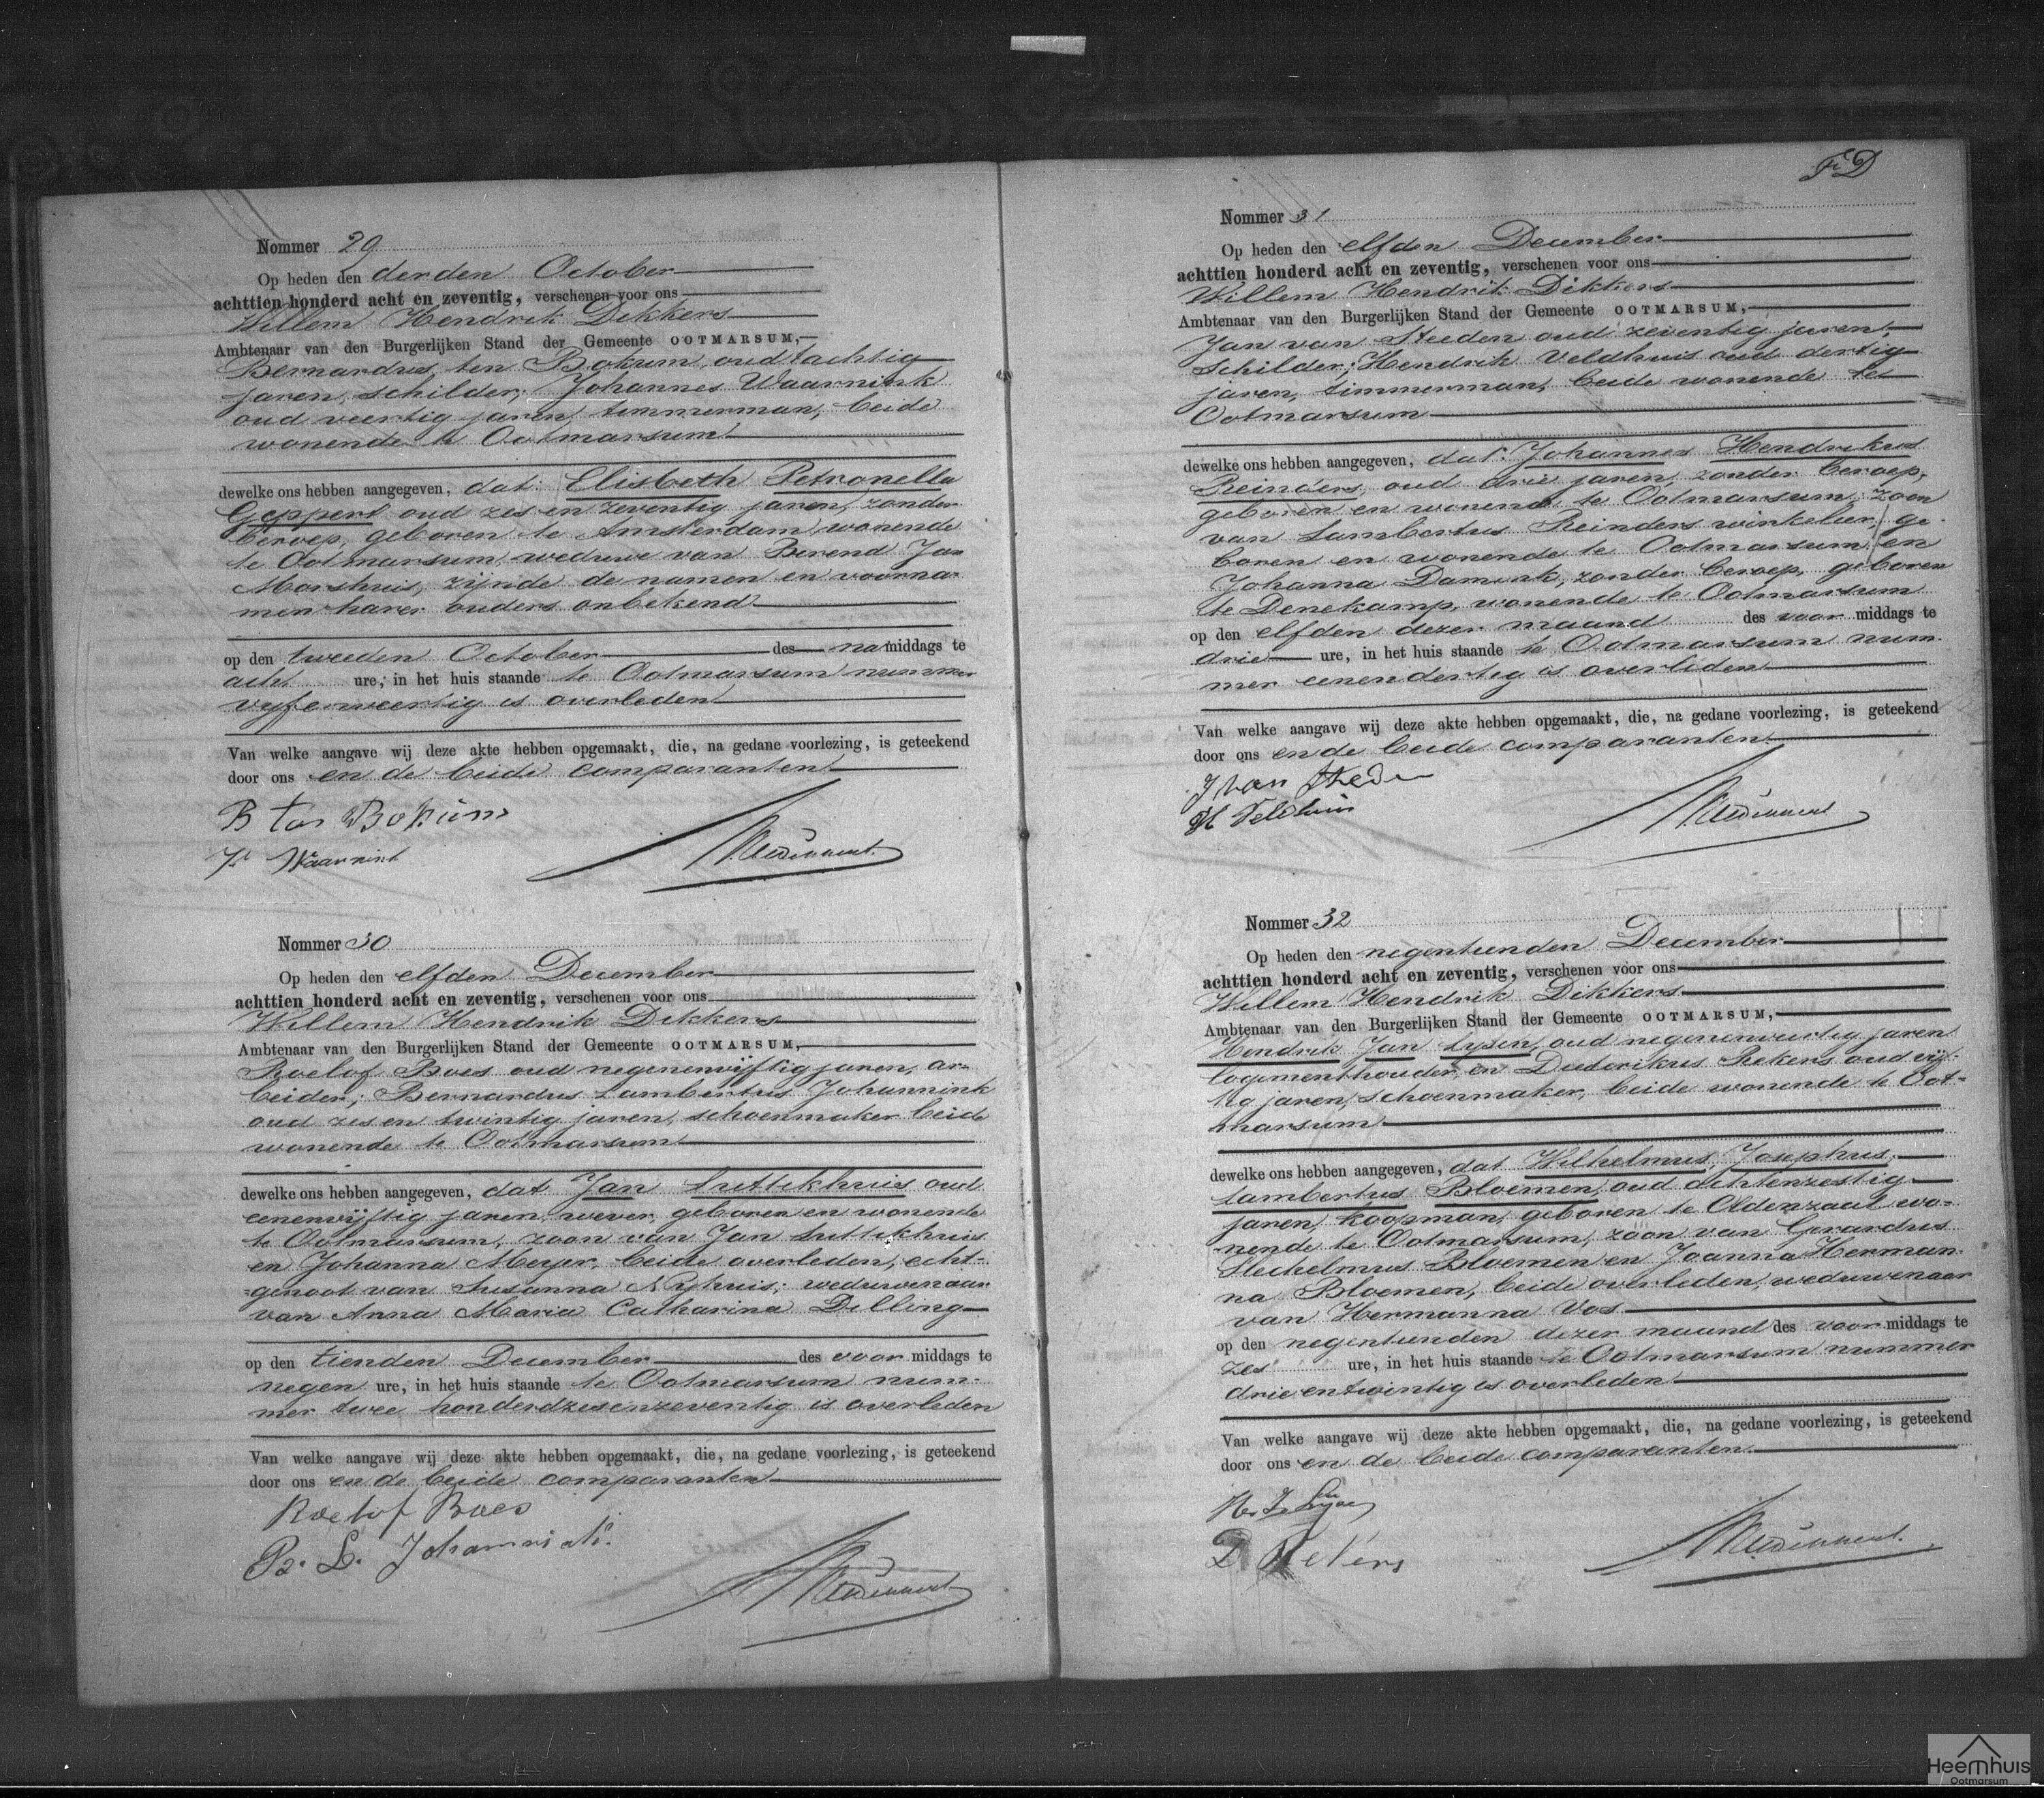 Nommer 29
Op heden den derden October
achttien honderd acht en zeventig, verschenen voor ons
Willem Hendrik Dikkers
Ambtenaar van den Burgerlijken Stand der Gemeente OOTMARSUM,
Bernardus ten Bokum, oud tachtig
jaren, schilder; Johannes Waarnink
oud veertig jaren, timmerman, beide
wonende te Ootmarsum
dewelke ons hebben aangegeven, dat: Elisbeth Petronella
Geppert oud zes en zeventig jaren, zonder
beroep, geboren te Amsterdam, wonende
te Ootmarsum, weduwe van Berend Jan
Morshuis, zijnde de namen en voorna-
men harer ouders onbekend
op den tweeden October des na middags te
acht ure, in het huis staande te Ootmarsum nummer
vyfenveertig is overleden
Van welke aangave wij deze akte hebben opgemaakt, die, na gedane voorlezing, is geteekend
door ons en de beide comparanten
B ten Bokum
J. Waarnink
Nommer 30
Op heden den elfden December
achttien honderd acht en zeventig, verschenen voor ons
Willem Hendrik Dikkers
Ambtenaar van den Burgerlijken Stand der Gemeente OOTMARSUM,
Roelof Boes oud negenenvijftig jaren, ar-
beider; Bernardus Lambertus Johannink
oud zes en twintig jaren, schoenmaker beide
wonende te Ootmarsum
dewelke ons hebben aangegeven, dat Jan Luttikhuis oud
eenenvijftig jaren, wever, geboren en wonende
te Ootmarsum, zoon van Jan Luttikhuis
en Johanna Meyer, beide overleden, echt-
genoot van Susanna Nyhuis; weduwenaar
van Anna Maria Catharina Delling
op den tienden December des voor middags te
negen ure, in het huis staande te Ootmarsum num-
mer twee honderdzesenzeventig is overleden
Van welke aangave wij deze akte hebben opgemaakt, die, na gedane voorlezing, is geteekend
door ons en de beide comparanten
Roelof Boes
B. L. Johannink
Nommer 31
Op heden den elfden December
achttien honderd acht en zeventig, verschenen voor ons
Willem Hendrik Dikkers
Ambtenaar van den Burgerlijken Stand der Gemeente OOTMARSUM,
Jan van Steeden oud zeventig jaren,
Schilder; Hendrik Veldhuis oud dertig
jaren, timmerman, beide wonende te
Ootmarsum
dewelke ons hebben aangegeven, dat: Johannes Hendrikus
Reinders, oud drie jaren, zonder beroep,
geboren en wonende te Ootmarsum, zoon
van Lambertus Reinders winkelier, ge-
boren en wonende te Ootmarsum, en
Johanna Damink, zonder beroep, geboren
te Denekamp, wonende te Ootmarsum
op den elfden dezer maand des voor middags te
drie ure, in het huis staande te Ootmarsum num-
mer eenendertig is overleden
Van welke aangave wij deze akte hebben opgemaakt, die, na gedane voorlezing, is geteekend
door ons en de beide comparanten
J van Steden
H Veldhuis
Nommer 32
Op heden den negentienden December
achttien honderd acht en zeventig, verschenen voor ons
Willem Hendrik Dikkers
Ambtenaar van den Burgerlijken Stand der Gemeente OOTMARSUM,
Hendrik Jan Lysen, oud negenenveertig jaren
logementhouder, en Diederikus Rekers oud vijf-
tig jaren, schoenmaker, beide wonende te Oot-
marsum
dewelke ons hebben aangegeven, dat Wilhelmus Josephus
Lambertus Bloemen, oud achtenzestig
jaren, koopman, geboren te Oldenzaal wo-
nende te Ootmarsum, zoon van Gerardus
Bloemen en Joanna Herman-
na Bloemen, beide overleden, weduwenaar
van Hermanna Vos
op den negentienden dezer maand des voor middags te
zes ure, in het huis staande te Ootmarsum nummer
drie entwintig is overleden
Van welke aangave wij deze akte hebben opgemaakt, die, na gedane voorlezing, is geteekend
door ons en de beide comparanten
D Rekers
Heemhuis
Ootmarsum